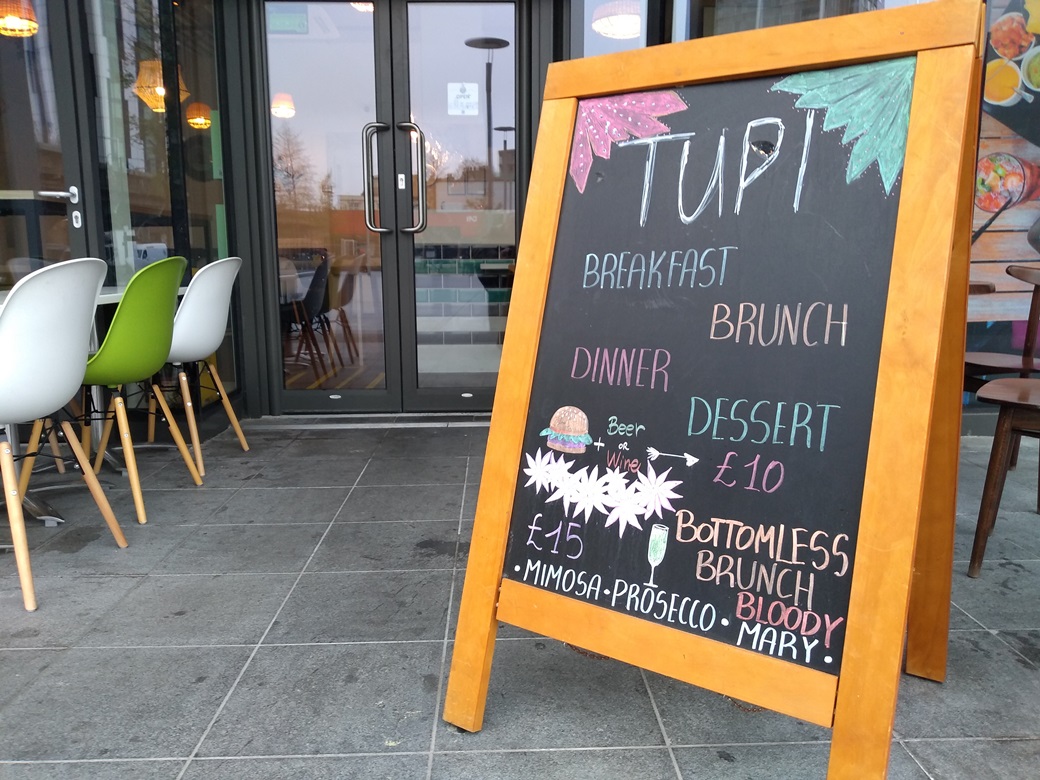 TUPI
BREAKFAST
BRUNCH
DINNER
DESSERT
+ Beer
OR
Wine
£10
£15
BOTTOMLESS
BRUNCH
•MIMOSA•PROSECCO• BLOODY
MARY•